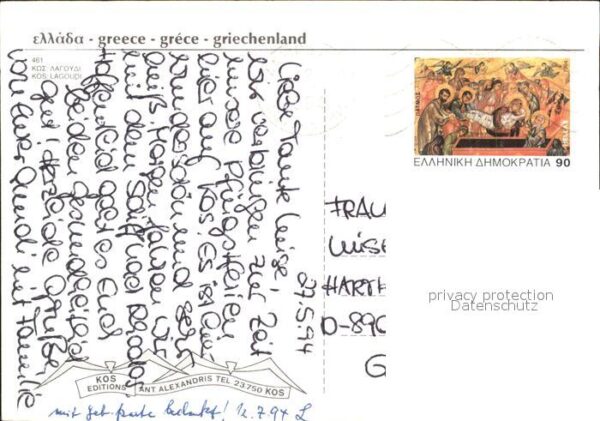 ελλάδα - greece - gréce - griechenland
461
ΚΩΣ ΛΑΓΟΥΔΙ
KOS LAGOUDI
ΕΛΛΗΝΙΚΗ ΔΗΜΟΚΡΑΤΙΑ 90
27.5.94
Liebe Tante Luise!
Wir verbringen zur Zeit
unsere Pfingstferien
hier auf Kos. Es ist ein
schön und sehr
heiß. Morgen fahren wir
mit dem Schiff nach Rhodos
Hoffentlich geht es Euch
beiden gesundheitlich
gut! Herzliche Grüße
von Eurer mit Familie
FRAU
LUISE
HARTH
D-890
G
privacy protection
Datenschutz
KOS EDITIONS ANT. ALEXANDRIS TEL 23.750 KOS
mit Karte 12.7.94 L